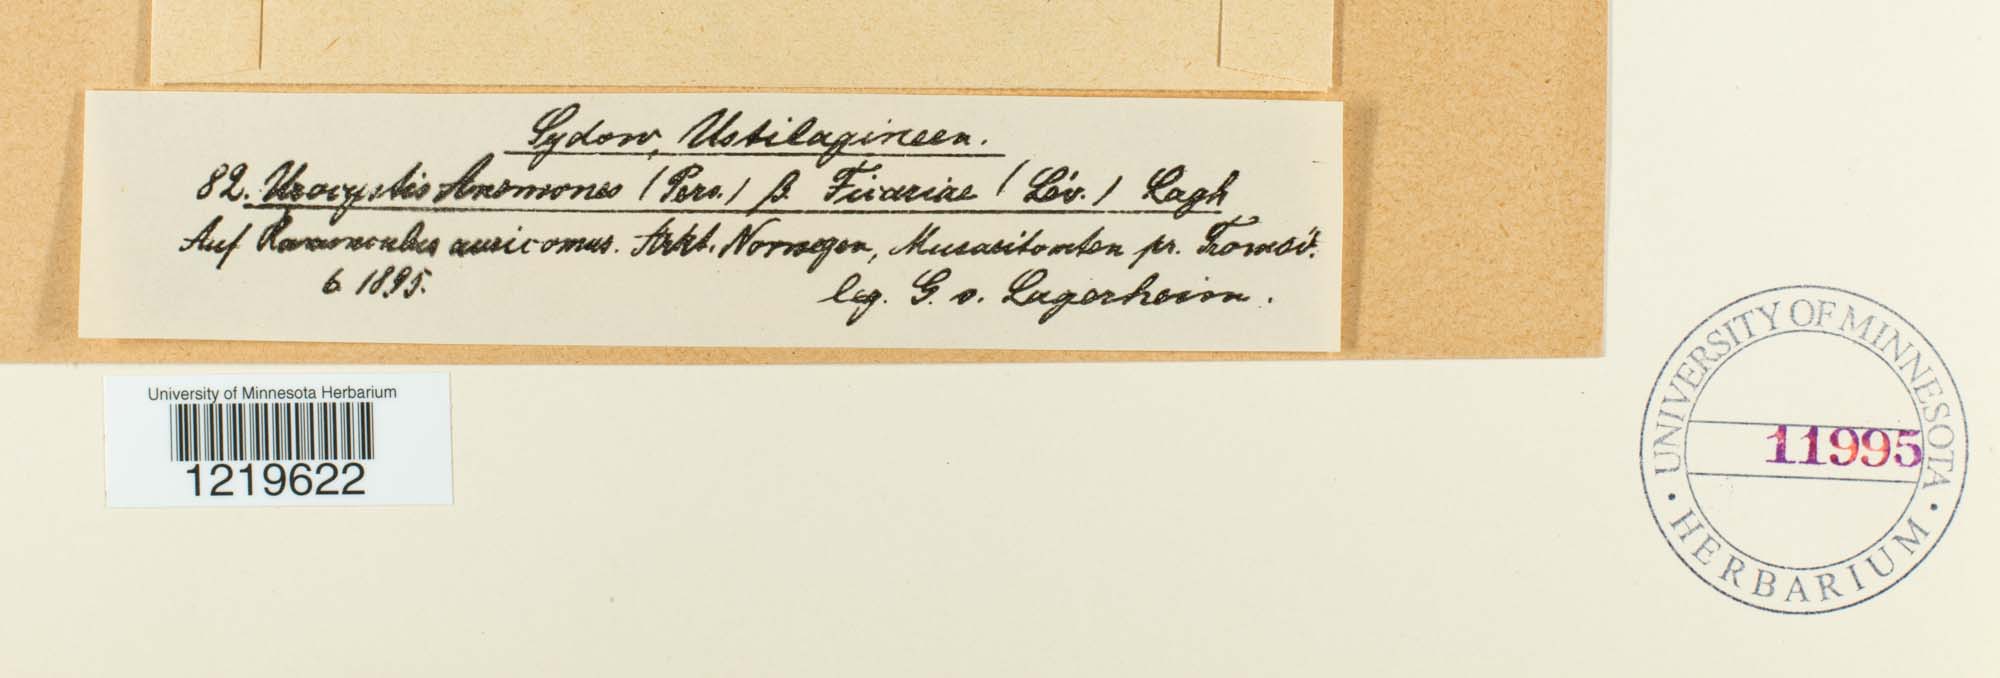 Sydow, Ustilagineen.
82. Urocystis Anemones (Pers.) β. Ficariae (Lév.) Lagh
Auf Ranunculus auricomus. Arkt. Norwegen, pr. Tromsö.
6 1895.
leg. G. v. Lagerheim.
University of Minnesota Herbarium
1219622
UNIVERSITY OF MINNESOTA
11995
• HERBARIUM •